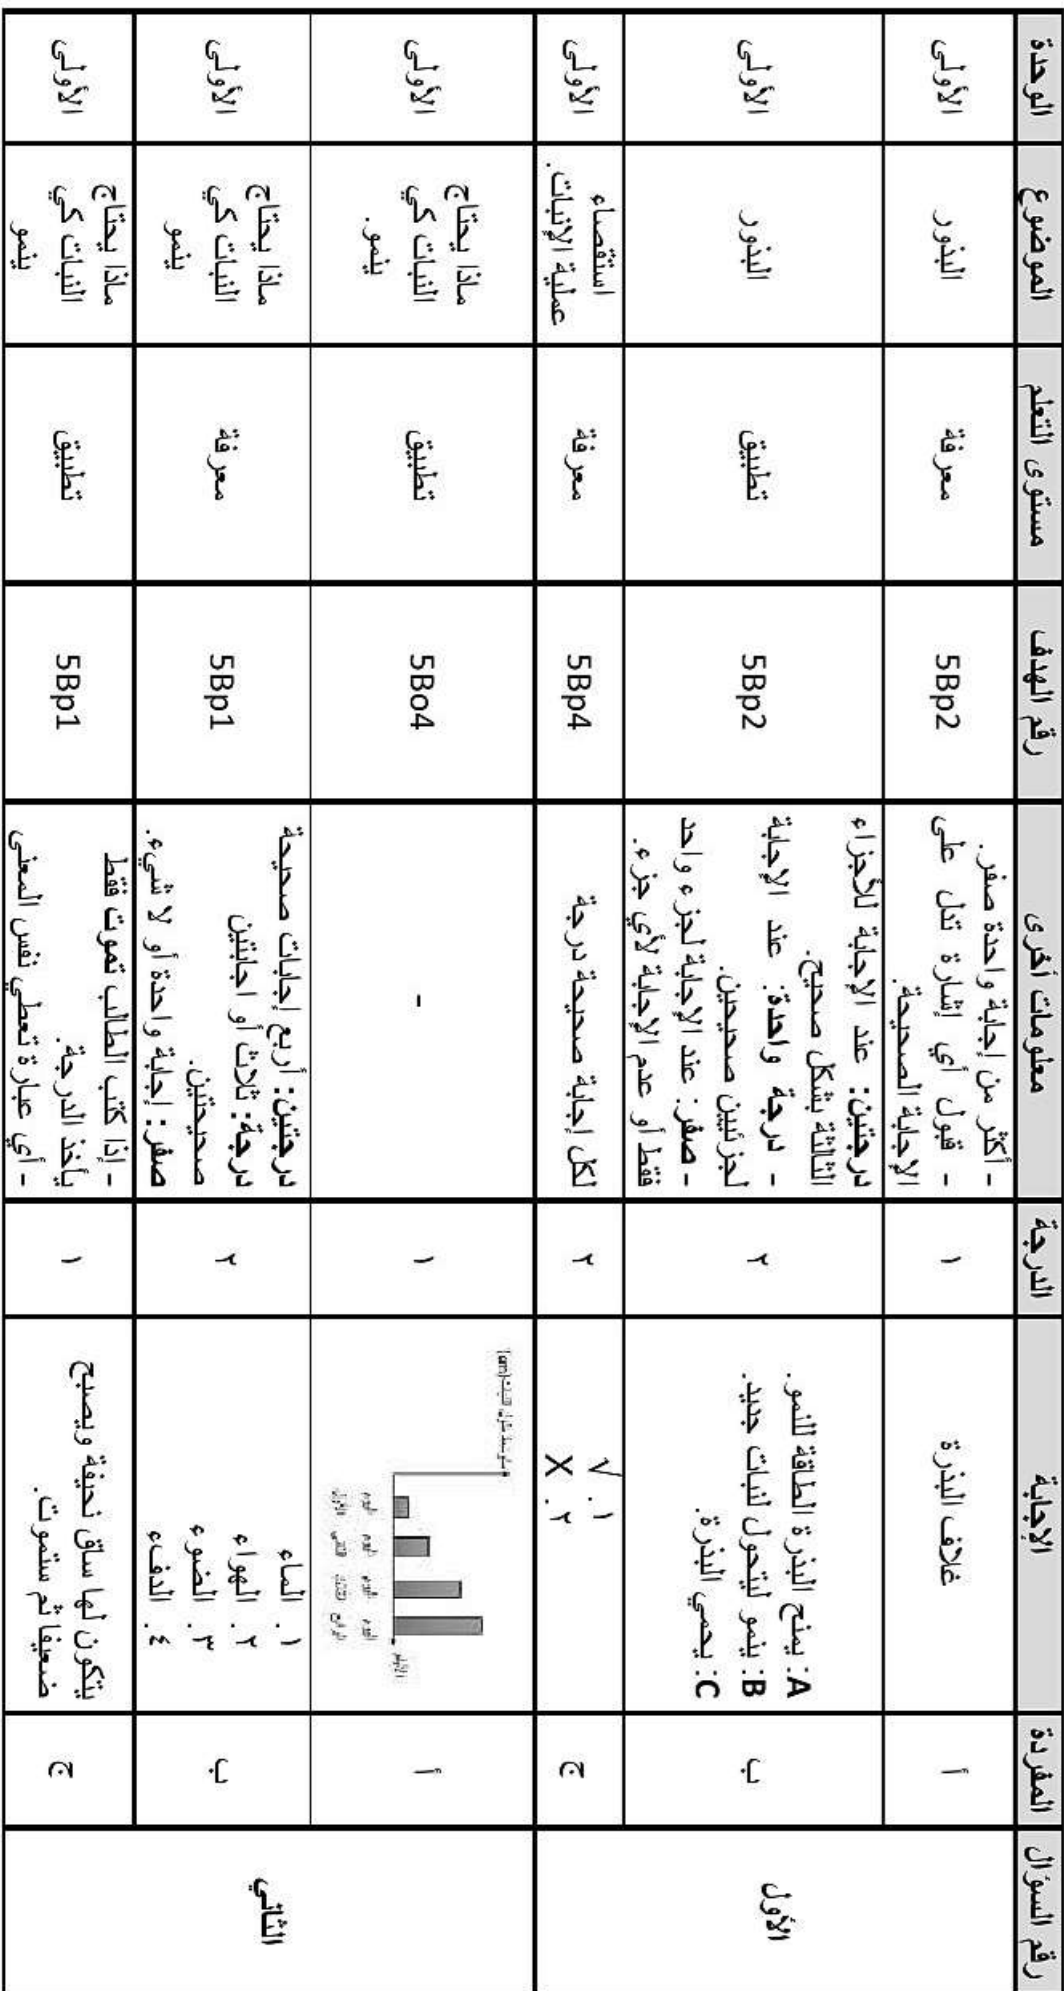 رقم السؤال المفردة الإجابة الدرجة معلومات أخرى رقم الهدف مستوى التعلم الموضوع الوحدة
الأول
أ
غلاف البذرة
١
- أكثر من إجابة واحدة صفر.
- قبول أي إشارة تدل على
الإجابة الصحيحة.
5Bp2
معرفة
البذور
الأولى
ب
A: يمنح البذرة الطاقة للنمو.
B: ينمو ليتحول لنبات جديد.
C: يحمي البذرة.
٢
درجتين: عند الإجابة للأجزاء
الثلاثة بشكل صحيح.
- درجة واحدة: عند الإجابة
لجزئيين صحيحين.
- صفر: عند الإجابة لجزء واحد
فقط أو عدم الإجابة لأي جزء.
5Bp2
تطبيق
البذور
الأولى
ج
١. √
٢. X
٢
لكل إجابة صحيحة درجة
5Bp4
معرفة
استقصاء
عملية الإنبات.
الأولى
الثاني
أ
متوسط طول النبات (cm)
اليوم الأول
اليوم الثاني
اليوم الثالث
اليوم الرابع
الأيام
١
-
5Bo4
تطبيق
ماذا يحتاج
النبات كي
ينمو.
الأولى
ب
١. الماء
٢. الهواء
٣. الضوء
٤. الدفء
٢
درجتين: أربع إجابات صحيحة
درجة: ثلاث أو اجابتين
صحيحتين.
صفر: إجابة واحدة أو لا شيء.
5Bp1
معرفة
ماذا يحتاج
النبات كي
ينمو
الأولى
ج
يتكون لها ساق نحيفة ويصبح
ضعيفا ثم ستموت.
١
- إذا كتب الطالب تموت فقط
يأخذ الدرجة.
- أي عبارة تعطي نفس المعنى
5Bp1
تطبيق
ماذا يحتاج
النبات كي
ينمو
الأولى